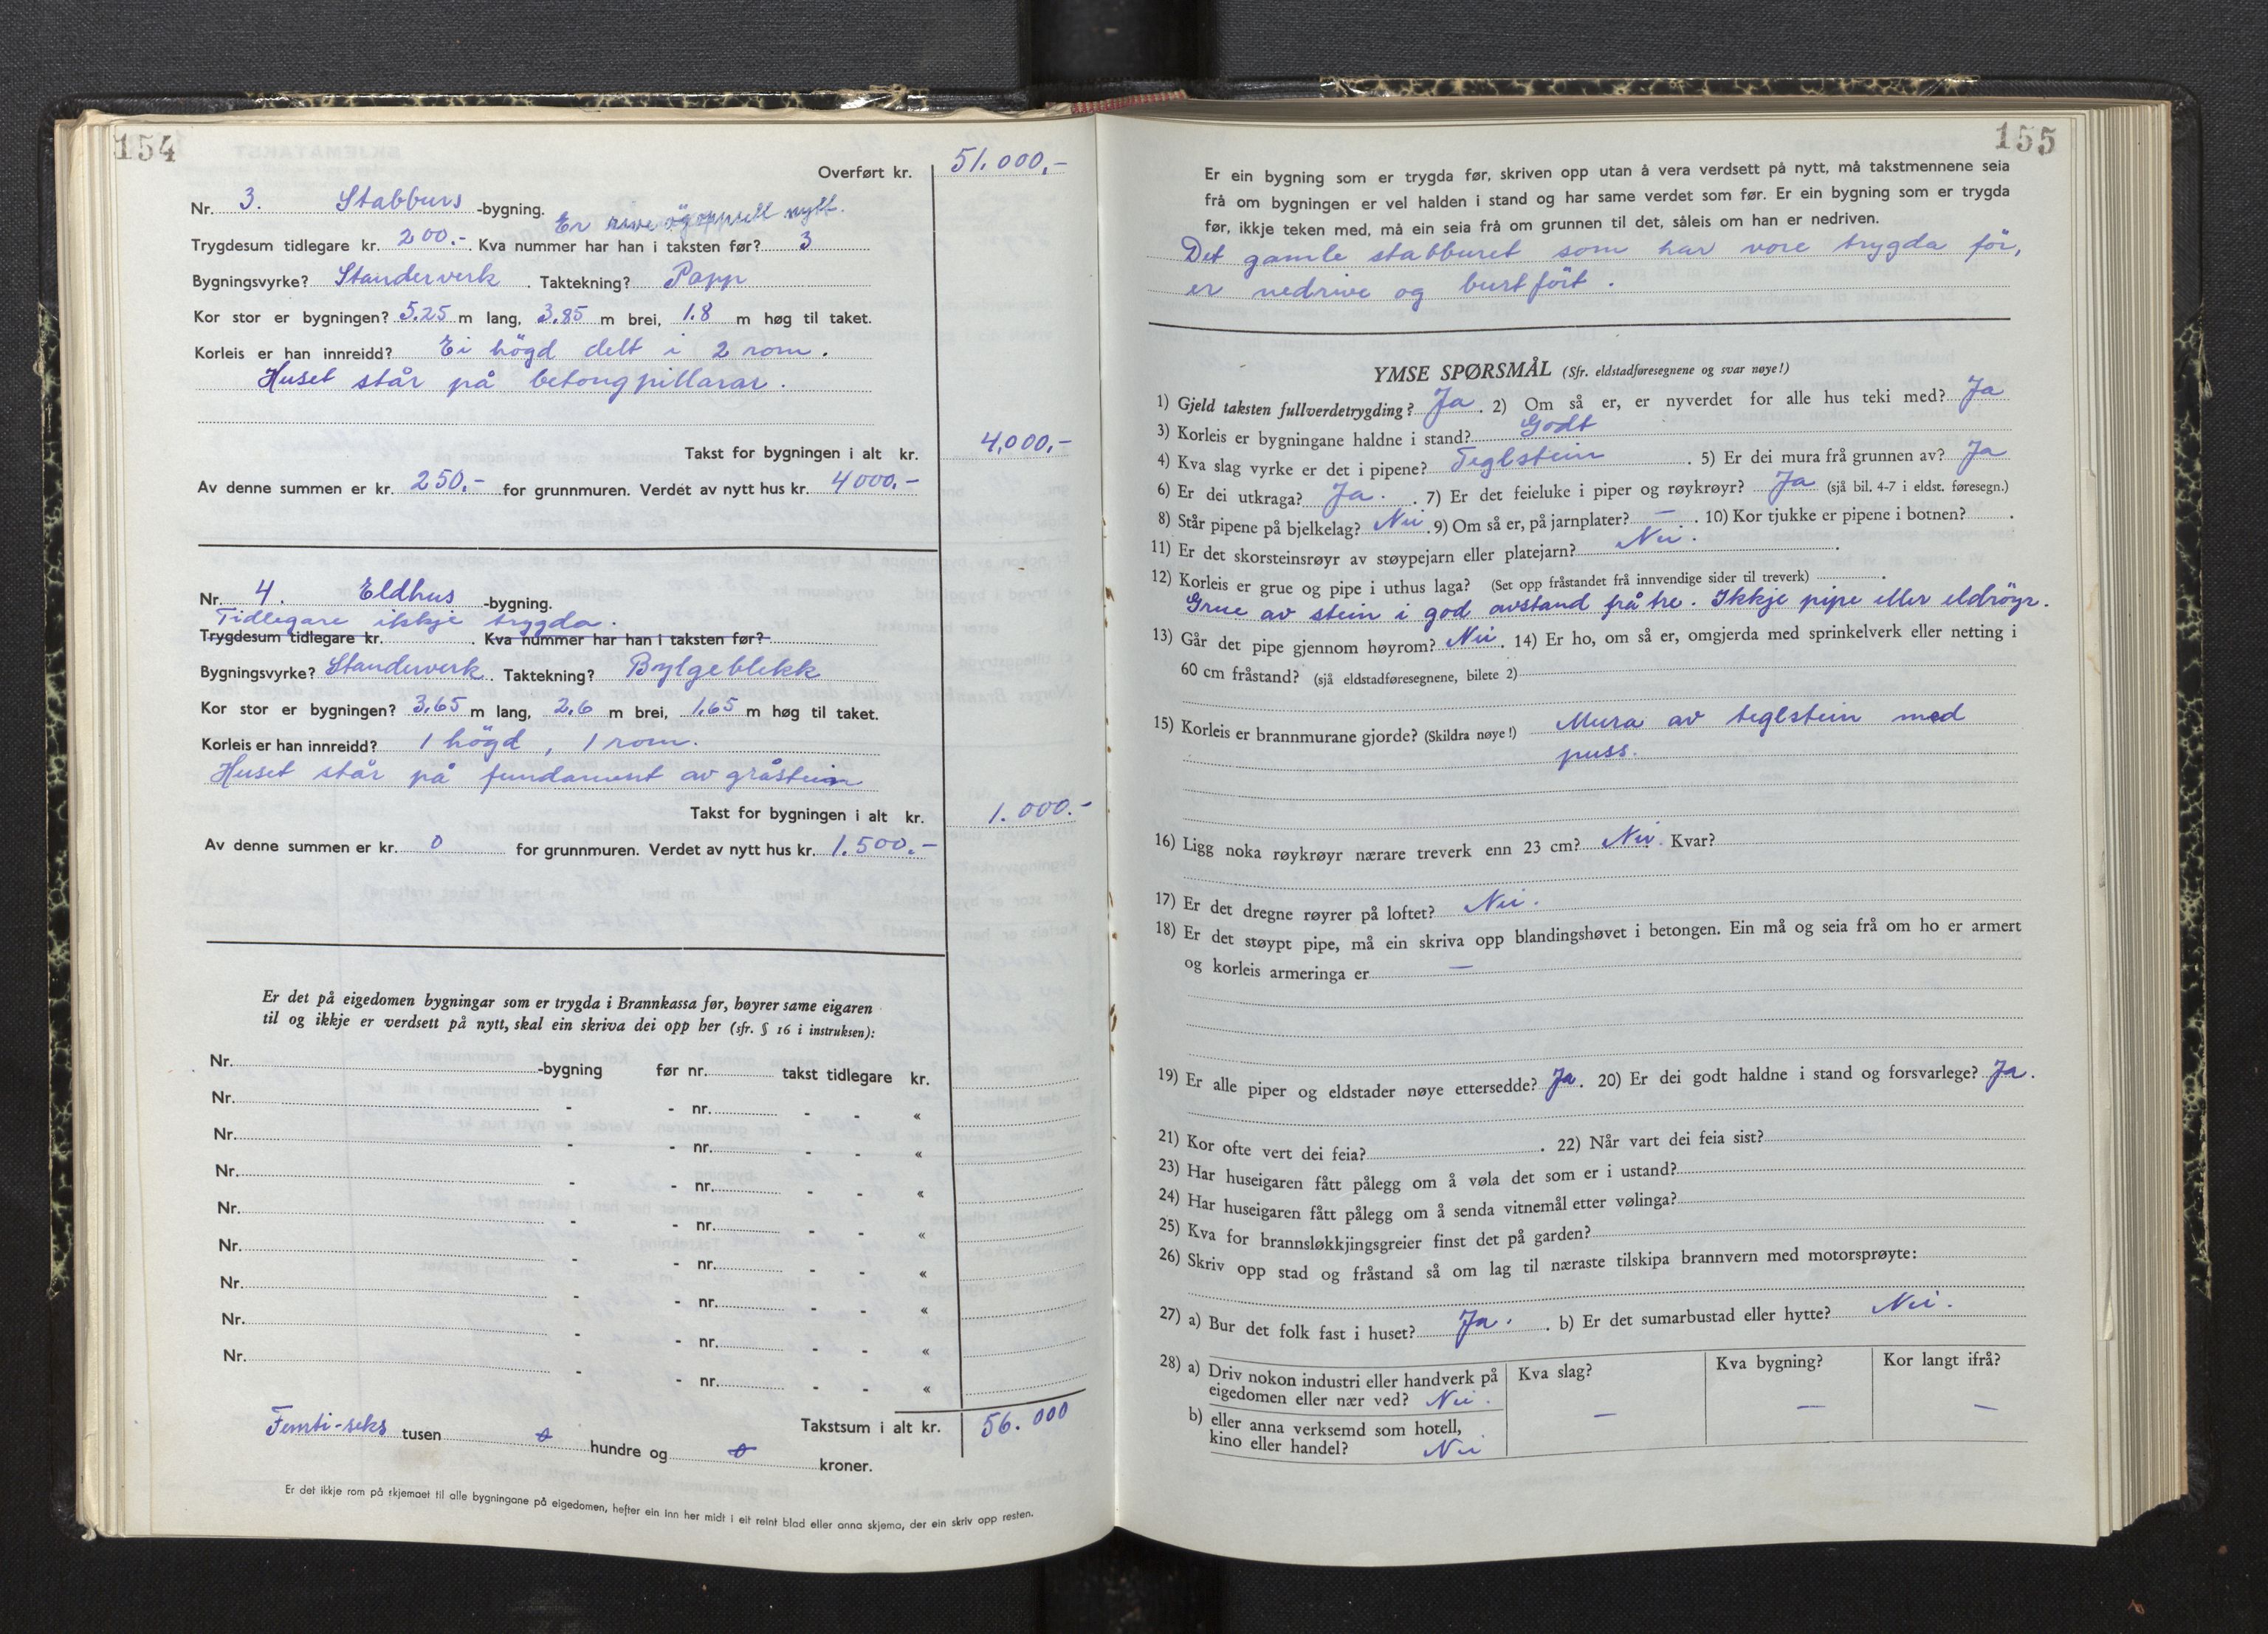 154
Overført kr. 51.000,-
Nr. 3. Stabburs -bygning. Er rive og oppsett nytt.
Trygdesum tidlegare kr. 200.- . Kva nummer har han i taksten før? 3
Bygningsvyrke? Standerverk . Taktekning? Papp
Kor stor er bygningen? 5.25 m lang, 3.85 m brei, 1.8 m høg til taket.
Korleis er han innreidd? Ei högd delt i 2 rom.
Huset står på betongpillarar.
Takst for bygningen i alt kr. 4,000,-
Av denne summen er kr. 250.- for grunnmuren. Verdet av nytt hus kr. 4000.-
Nr. 4. Eldhus -bygning.
Tidlegare ikkje trygda.
Trygdesum tidlegare kr. . Kva nummer har han i taksten før?
Bygningsvyrke? Standerverk . Taktekning? Bylgeblekk
Kor stor er bygningen? 3.65 m lang, 2.6 m brei, 1.65 m høg til taket.
Korleis er han innreidd? 1 högd, 1 rom.
Huset står på fundament av gråstein
Takst for bygningen i alt kr. 1.000.-
Av denne summen er kr. 0 for grunnmuren. Verdet av nytt hus kr. 1.500.-
Er det på eigedomen bygningar som er trygda i Brannkassa før, høyrer same eigaren
til og ikkje er verdsett på nytt, skal ein skriva dei opp her (sfr. § 16 i instruksen):
Nr. -bygning før nr. takst tidlegare kr.
Nr. - - nr. - - «
Nr. - - nr. - - «
Nr. - - nr. - - «
Nr. - - nr. - - «
Nr. - - nr. - - «
Nr. - - nr. - - «
Nr. - - nr. - - «
Nr. - - nr. - - «
Takstsum i alt kr. 56.000
Femti-seks tusen 0 hundre og 0 kroner.
Er det ikkje rom på skjemaet til alle bygningane på eigedomen, hefter ein inn her midt i eit reint blad eller anna skjema, der ein skriv opp resten.
155
Er ein bygning som er trygda før, skriven opp utan å vera verdsett på nytt, må takstmennene seia
frå om bygningen er vel halden i stand og har same verdet som før. Er ein bygning som er trygda
før, ikkje teken med, må ein seia frå om grunnen til det, såleis om han er nedriven.
Det gamle stabburet som har vore trygda för,
er nedrive og burtfört.
YMSE SPØRSMÅL (Sfr. eldstadføresegnene og svar nøye!)
1) Gjeld taksten fullverdetrygding? Ja . 2) Om så er, er nyverdet for alle hus teki med? Ja
3) Korleis er bygningane haldne i stand? Godt
4) Kva slag vyrke er det i pipene? Teglstein . 5) Er dei mura frå grunnen av? Ja
6) Er dei utkraga? Ja. . 7) Er det feieluke i piper og røykrøyr? Ja (sjå bil. 4-7 i eldst. føresegn.)
8) Står pipene på bjelkelag? Nei . 9) Om så er, på jarnplater? — . 10) Kor tjukke er pipene i botnen? .
11) Er det skorsteinsrøyr av støypejarn eller platejarn? Nei. .
12) Korleis er grue og pipe i uthus laga? (Set opp fråstandet frå innvendige sider til treverk) .
Grue av stein i god avstand frå tre. Ikkje pipe eller eldröyr.
13) Går det pipe gjennom høyrom? Nei . 14) Er ho, om så er, omgjerda med sprinkelverk eller netting i
60 cm fråstand? (sjå eldstadføresegnene, bilete 2)
15) Korleis er brannmurane gjorde? (Skildra nøye!) Mura av teglstein med
puss.
16) Ligg noka røykrøyr nærare treverk enn 23 cm? Nei. Kvar?
17) Er det dregne røyrer på loftet? Nei.
18) Er det støypt pipe, må ein skriva opp blandingshøvet i betongen. Ein må og seia frå om ho er armert
og korleis armeringa er —
19) Er alle piper og eldstader nøye ettersedde? Ja . 20) Er dei godt haldne i stand og forsvarlege? Ja .
21) Kor ofte vert dei feia? . 22) Når vart dei feia sist?
23) Har huseigaren fått pålegg om å vøla det som er i ustand?
24) Har huseigaren fått pålegg om å senda vitnemål etter vølinga?
25) Kva for brannsløkkjingsgreier finst det på garden?
26) Skriv opp stad og fråstand så om lag til næraste tilskipa brannvern med motorsprøyte:
27) a) Bur det folk fast i huset? Ja. . b) Er det sumarbustad eller hytte? Nei.
28) a) Driv nokon industri eller handverk på Kva slag? Kva bygning? Kor langt ifrå?
eigedomen eller nær ved? Nei.
b) eller anna verksemd som hotell, — — —
kino eller handel? Nei